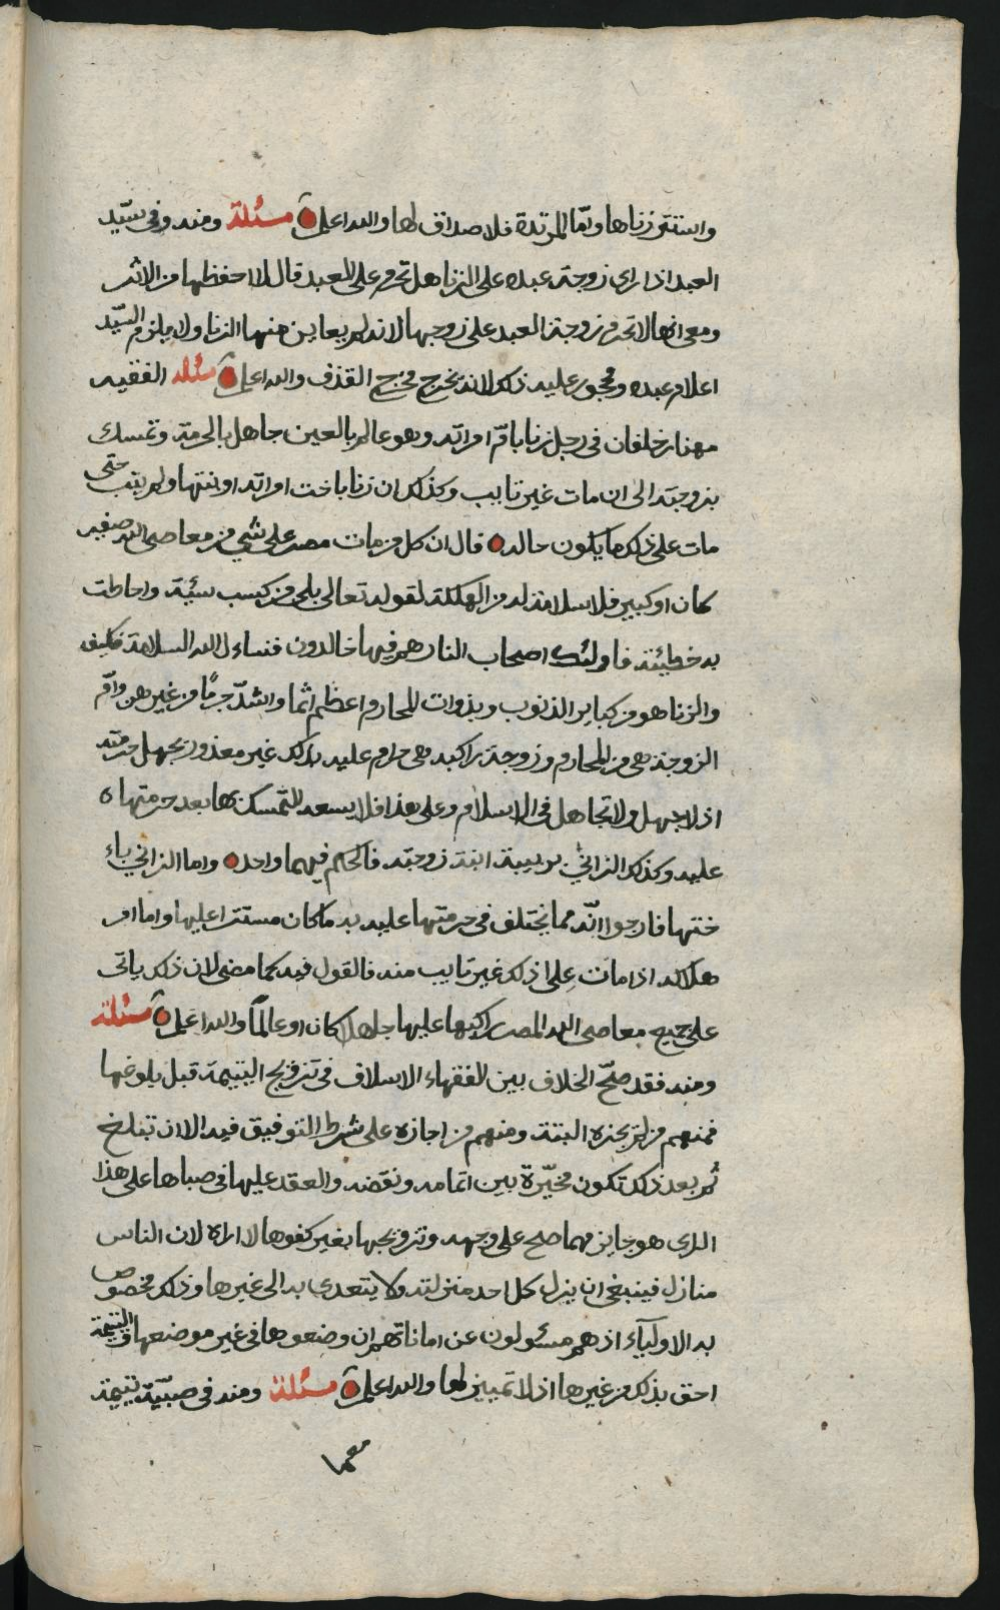 واستتر زناها وامّا المرتدة فلا صداق لها والله اعلم مسئلة ومنه وفي سيّد
العبد اذا راى زوجة عبده على الزنا هل تحرم على العبد قال لا احفظها من الاثر
ومعي انها لا تحرم زوجة العبد على زوجها لانه لم يعاين منها الزنا ولا يلزم السيّد
اعلام عبده ومحجور عليه ذلك لانه يخرج مخرج القذف والله اعلم مسئله الفقيه
مهنا بن خلفان في رجل زنا بامّ امراته وهو عالم بالعين جاهل بالحرمة وتمسك
بزوجته الى ان مات غير تايب وكذلك ان زنا باخت امراته او بنتها ولم يتب حتى
مات على ذلك ما يكون حاله قال ان كل من مات مصر على شي من معاصي الله صغير
كان او كبير فلا سلامة له من الهلكة لقوله تعالى بلى من كسب سيئة واحاطت
به خطيئته فاولئك اصحاب النار هم فيها خالدون فنساءل الله السلامة فكيف
والزنا هو من كباير الذنوب وبذوات المحارم اعظم اثما واشدّ جرمًا من غيرهن وامّ
الزوجة هي من المحارم وزوجة راكبه هي حرام عليه بذلك غير معذور بجهل حرمته
اذ لا جهل ولا تجاهل في الاسلام وعلى هذا فلا يسعه التمسك بها بعد حرمتها ه
عليه وكذلك الزاني بربيبة ابنة زوجته فالحكم فيهما واحد واما الزاني باء
ختها فارجوا انّه مما يختلف في حرمتها عليه به ما كان مستترا عليها واما امر
هلاكه اذا مات على اذلك غير تايب منه فالقول فيه كما مضى لان ذلك ياتى
على جميع معاصي الله المصر راكبها عليها جاهلا كان او عالمًا والله اعلم مسئلة
ومنه فقد صحّ الخلاف بين الفقهاء الاسلاف في تزويج اليتيمة قبل بلوغها
فمنهم من لم يجزه البتة ومنهم من اجازه على شرط التوفيق فيه الا ان تبلغ
ثم بعد ذلك تكون مخيّرة بين اتمامه ونقضه والعقد عليها في صباها على هذا
الذي هو جايز مهما صح على وجهه وتزويجها بغير كفوها لا اراه لان الناس
منازل فينبغي ان ينزل كل احد منزلته ولا يتعدى به الى غيرها وذلك مخصوص
به الاولياء اذ هم مسئولون عن اماناتهم ان وضعوها في غير موضعها واليتيمة
احق بذلك من غيرها اذ لا تمييز لها والله اعلم مسئلة ومنه في صبيّة يتيمة